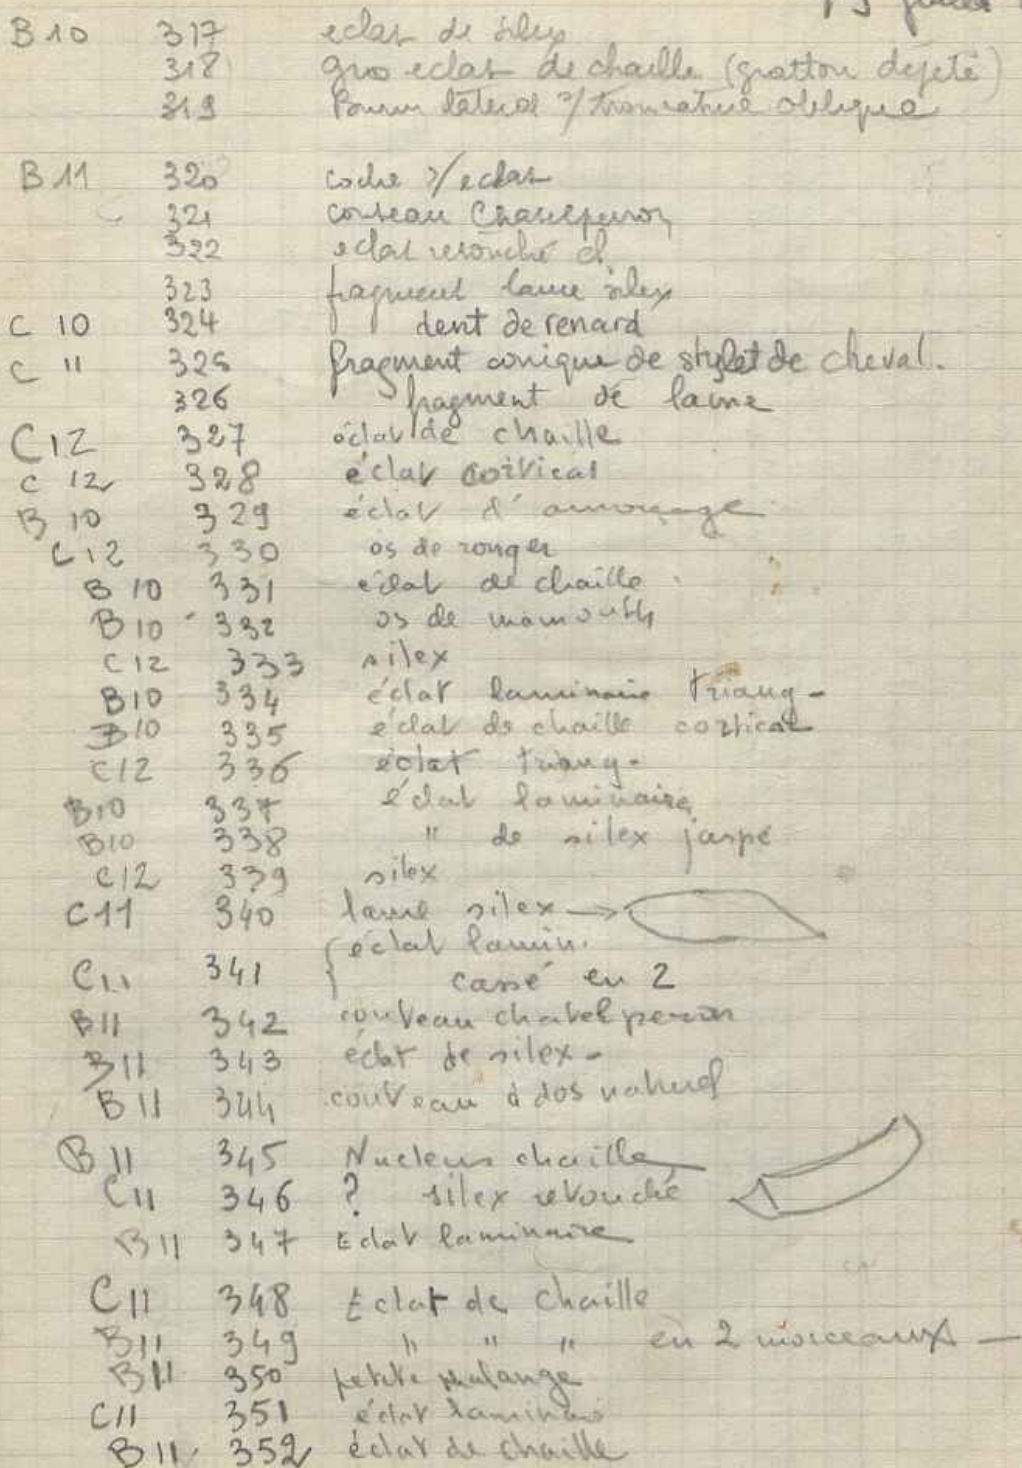 13 juillet
B10 317 eclat de silex
318 gros eclat de chaille (grattoir dejeté)
319 Burin lateral s/ troncature oblique
B11 320 coche s/ eclat
321 couteau Chatelperron
322 eclat retouché ch
323 fragment lame silex
C 10 324 dent de renard
C 11 325 fragment conique de stylet de cheval.
326 fragment de lame
C12 327 éclat de chaille
C 12 328 éclat cortical
B 10 329 éclat d'amorçage
C12 330 os de ronger
B 10 331 éclat de chaille
B10 332 os de mamouth
C12 333 silex
B10 334 éclat laminaire triang-
B10 335 eclat de chaille cortical
C12 336 éclat triang-
B10 337 éclat laminaire
B10 338 " de silex jaspé
C12 339 silex
C11 340 lame silex →
éclat lamin.
C11 341 cassé en 2
B11 342 couteau chatelperron
B11 343 éclat de silex -
B11 344 couteau à dos naturel
B11 345 Nucleus chaille
C11 346 ? silex retouché
B11 347 Eclat laminaire
C11 348 Eclat de chaille
B11 349 " " " en 2 morceaux —
B11 350 petite phalange
C11 351 éclat laminaire
B11 352 éclat de chaille